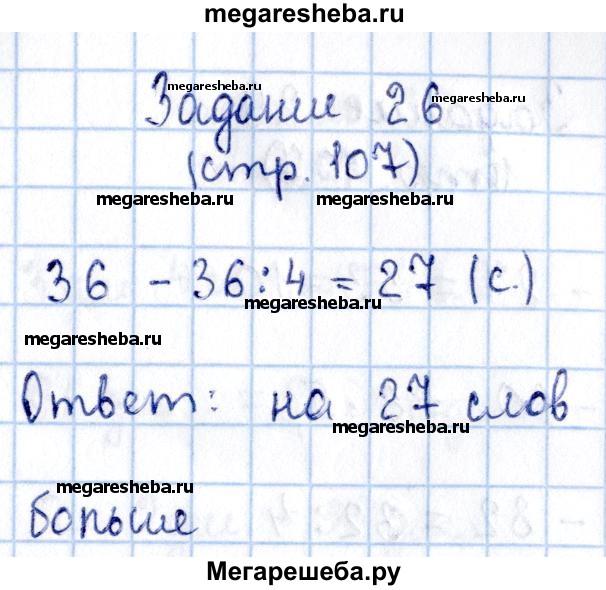 megaresheba.ru
megaresheba.ru
Задание 26
megaresheba.ru
(стр. 107)
megaresheba.ru megaresheba.ru
36 - 36:4 = 27 (с.)
megaresheba.ru
megaresheba.ru
Ответ: на 27 слов
megaresheba.ru
megaresheba.ru
больше
Мегарешеба.ру